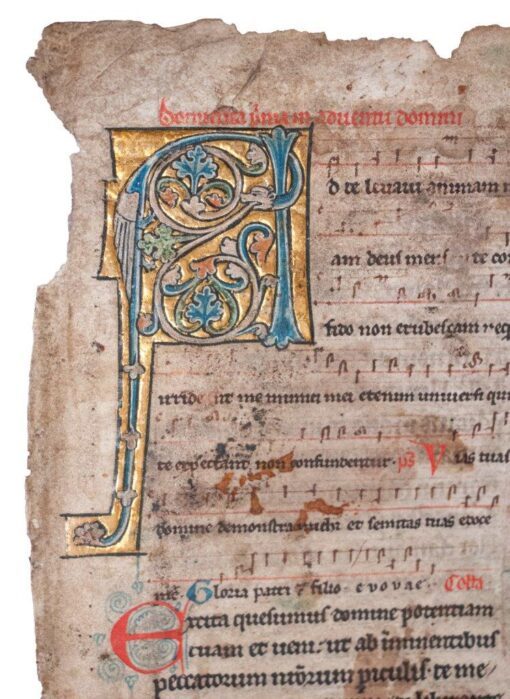 Dominica p̄ma in aduentu domini
A d te leuaui animam m
am deus meus te con
fido non erubescam neq
irride nt me inimici mei etenim uniuersi qui
te expectant non confundentur. ps̄ Vias tuas
domine demonstra michi et semitas tuas edoce
me. Gloria patri ⁊ filio. e v o v a e. Coll̄a
Excita quesumus domine potentiam
tuam et ueni. ut ab īminentibus
peccatorum nr̄orum p̲iculis. te me